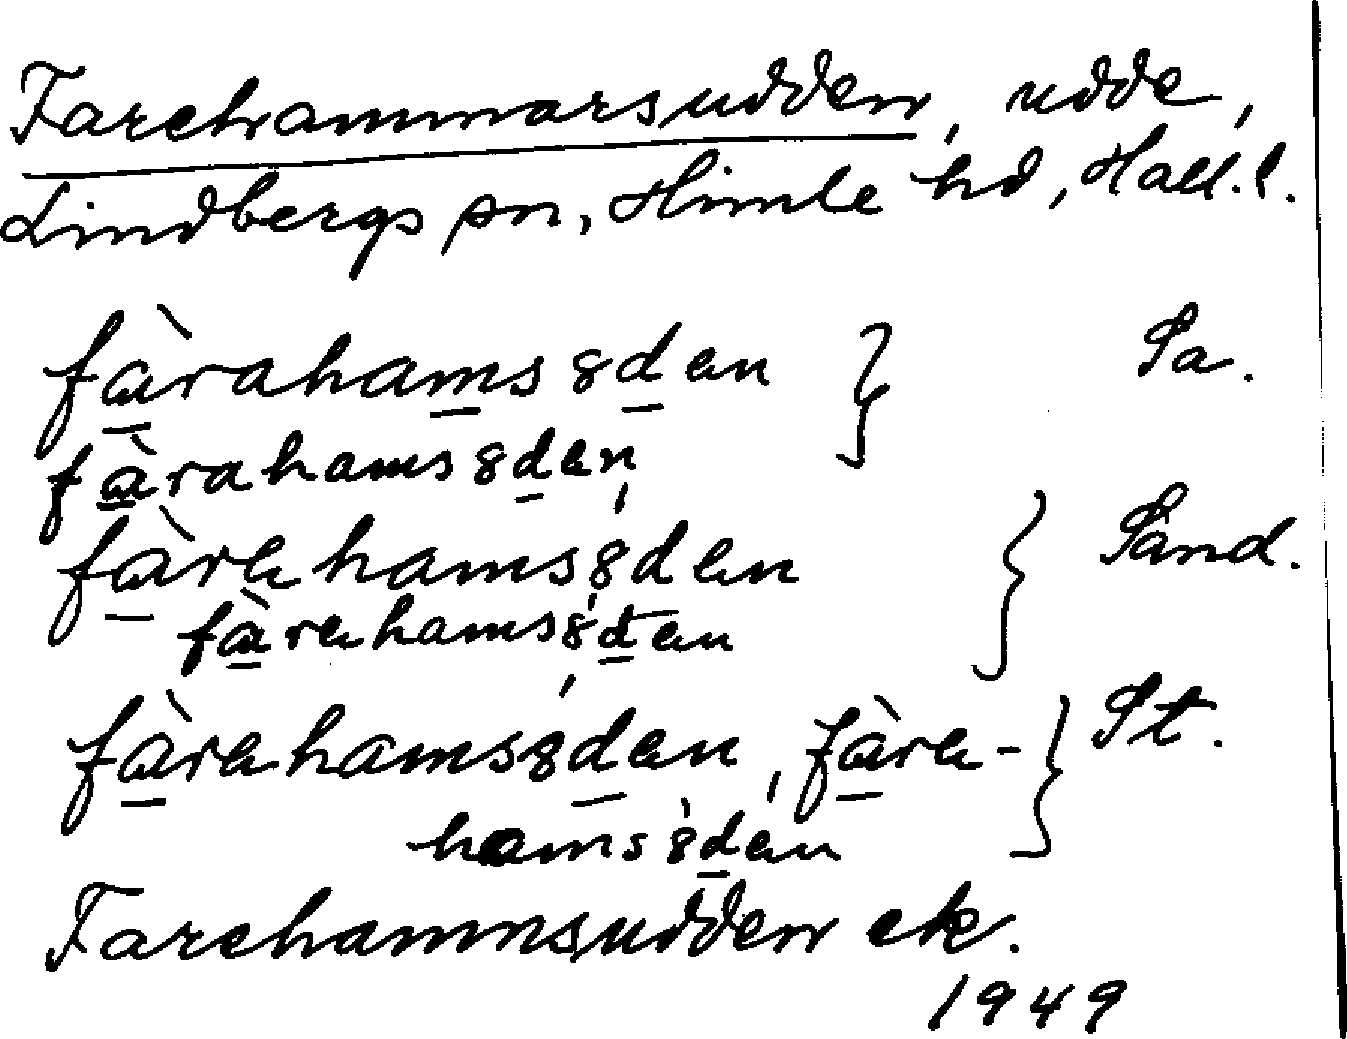 Farehammarsudden, udde,
Lindbergs sn, Himle hd, Hall. l.
fàrahams8den } Sa.
fàrahams8den
fàrehams8den } Sand.
fàrehams8den
fàrehams8den, fàre- } St.
hams8den
Farehamnsudden ek.
1949